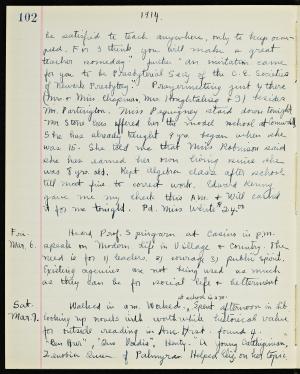 102
1914.
be satisfied to teach anywhere, only to keep occu-
pied. For I think you will make a great
teacher someday" "an invitation came
for you to be Presbyterial Secy of the C.E. Societies
of Newark Presbytery." Prayermeeting just 4 there
(Mr & Miss Chapman, Mrs Houghtaling & I) besides
Mr. Partington. Miss stayed down tonight
Mr offered her the model school at
She has already taught 9 yrs began when she
was 15. She told me that Miss Robinson said
she has earned her own living since she
was 8 yrs old. Kept Algebra class after school
till most five to correct work. Edward Kenny
gave me my check this A.M. & Will called
it for me tonight. Pd. Miss White $24.00
Fri.
Mar. 6.
Heard Prof. Spingarn at Casino in p.m.
speak on Modern Life in Village & Country. The
need is for 1) leaders. 2) courage 3) public spirit.
Existing agencies are not being used as much
as they can be for social life & betterment
at school in a.m.
Sat.
Mar. 7.
Walked in a.m. Waked, Spent afternoon in lib
looking up novels with worth while historical value
for outside reading in Anc. Hist. found 4.
"Ben Hur", "Quo Vadis", Henty "A Young Carthaginian,
Zenobia Queen of Palmyra. Helped on her topic